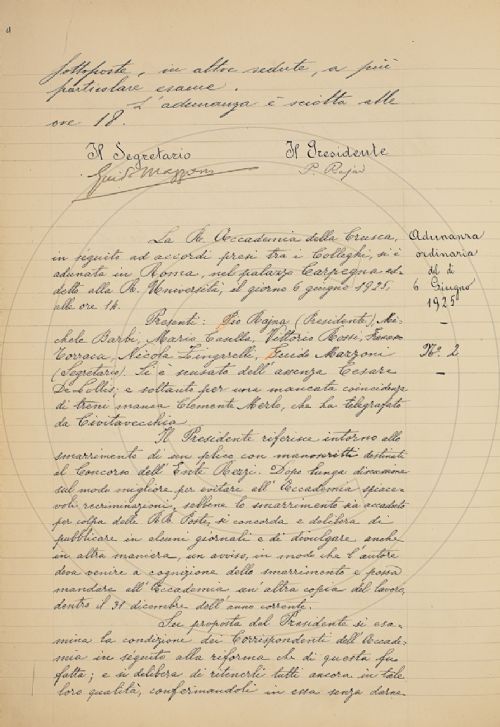 sottoposte, in altre sedute, a più
particolare esame.
L'adunanza è sciolta alle
ore 18.
Il Segretario Il Presidente
Guido Mazzoni P. Rajna
La R. Accademia della Crusca,
in seguito ad accordi presi tra i Colleghi, si è
adunata in Roma, nel palazzo Carpegna ad-
detto alla R. Università, il giorno 6 giugno 1925,
alle ore 14.
Adunanza
ordinaria
del dì
6 Giugno
1925
—
N.º 2
—
Presenti: Pio Rajna (Presidente), Mi-
chele Barbi, Mario Casella, Vittorio Rossi, Francesco
Torraca, Nicola Zingarelli, Guido Mazzoni
(Segretario). Si è scusato dell'assenza Cesare
De Lollis; e soltanto per una mancata coincidenza
di treni manca Clemente Merlo, che ha telegrafato
da Civitavecchia.
Il Presidente riferisce intorno allo
smarrimento di un plico con manoscritti destinati
al Concorso dell'Ente Rezzi. Dopo lunga discussione
sul modo migliore per evitare all'Accademia spiace-
voli recriminazioni, sebbene lo smarrimento sia accaduto
per colpa delle RR. Poste, si concorda e delibera di
pubblicare in alcuni giornali e di divulgare anche
in altra maniera, un avviso, in modo che l'autore
deva venire a cognizione dello smarrimento e possa
mandare all'Accademia un'altra copia del lavoro,
dentro il 31 dicembre dell'anno corrente.
Su proposta del Presidente si esa-
mina la condizione dei Corrispondenti dell'Accade-
mia in seguito alla riforma che di questa fu
fatta; e si delibera di ritenerli tutti ancora in tale
loro qualità, confermandoli in essa senza darne